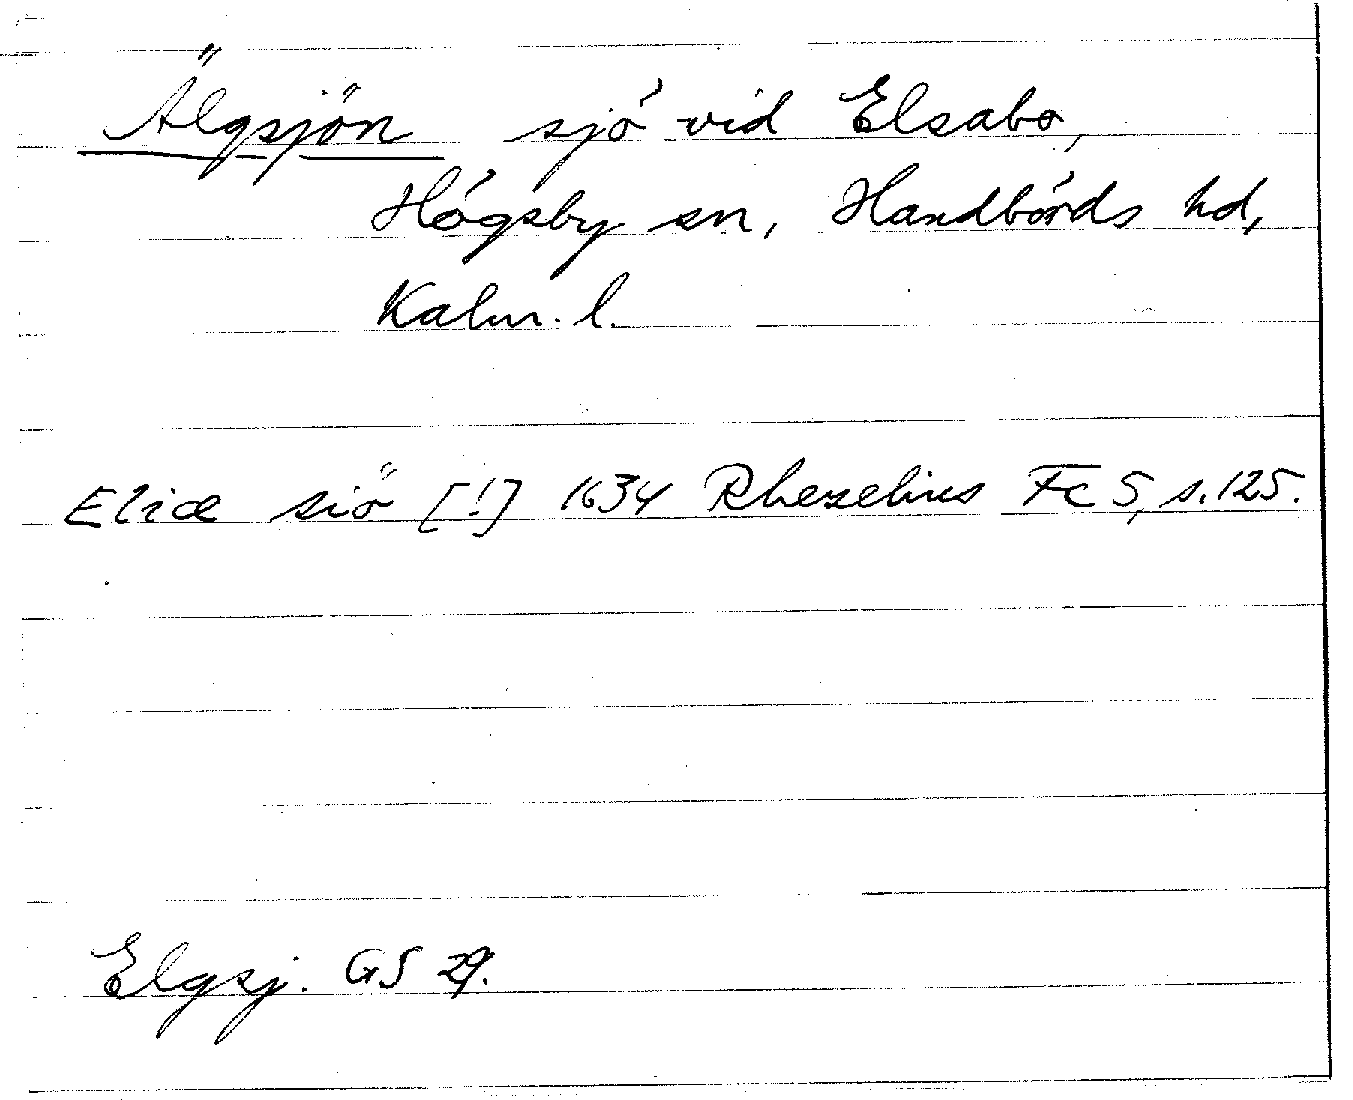 Älgsjön sjö vid Elsabo,
Högsby sn, Handbörds hd,
Kalm. l.
Eliæ siö [!] 1634 Rhezelius Fc 5, s. 125.
Elgsj. GS 29.